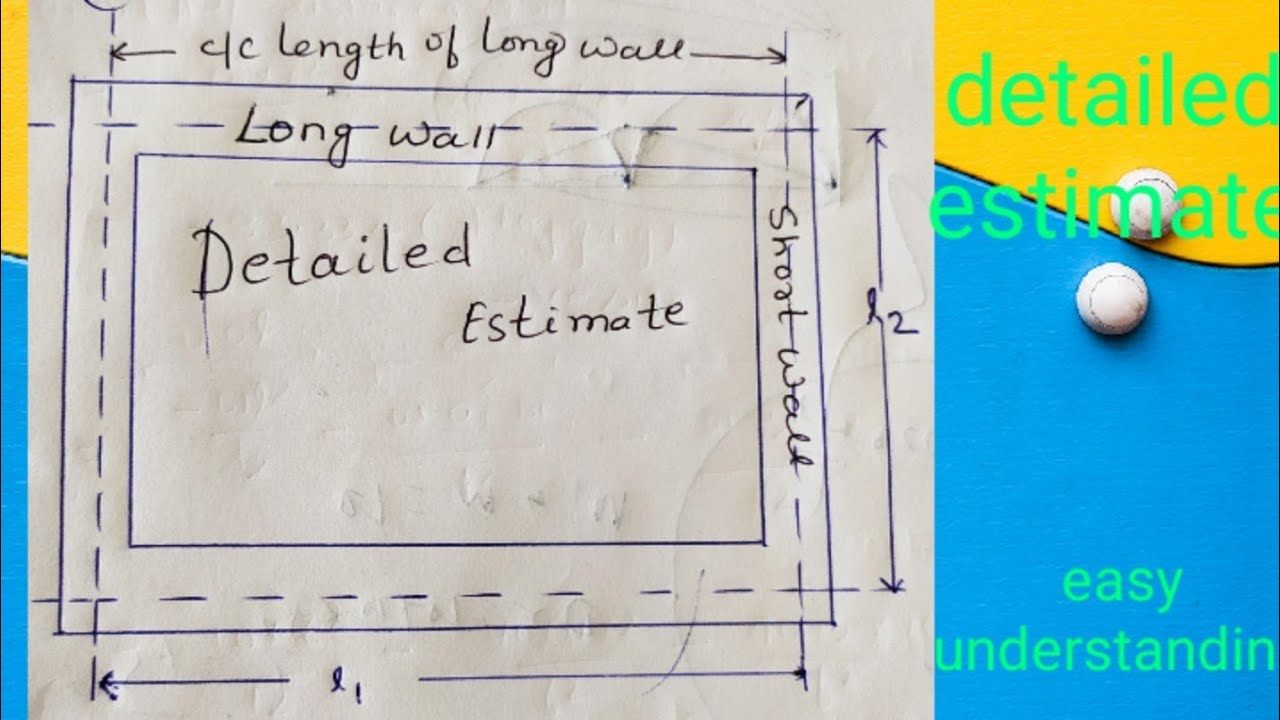 c/c length of long wall
Long wall
Detailed
Estimate
Short wall
l2
l1
detailed
estimate
easy
understandin